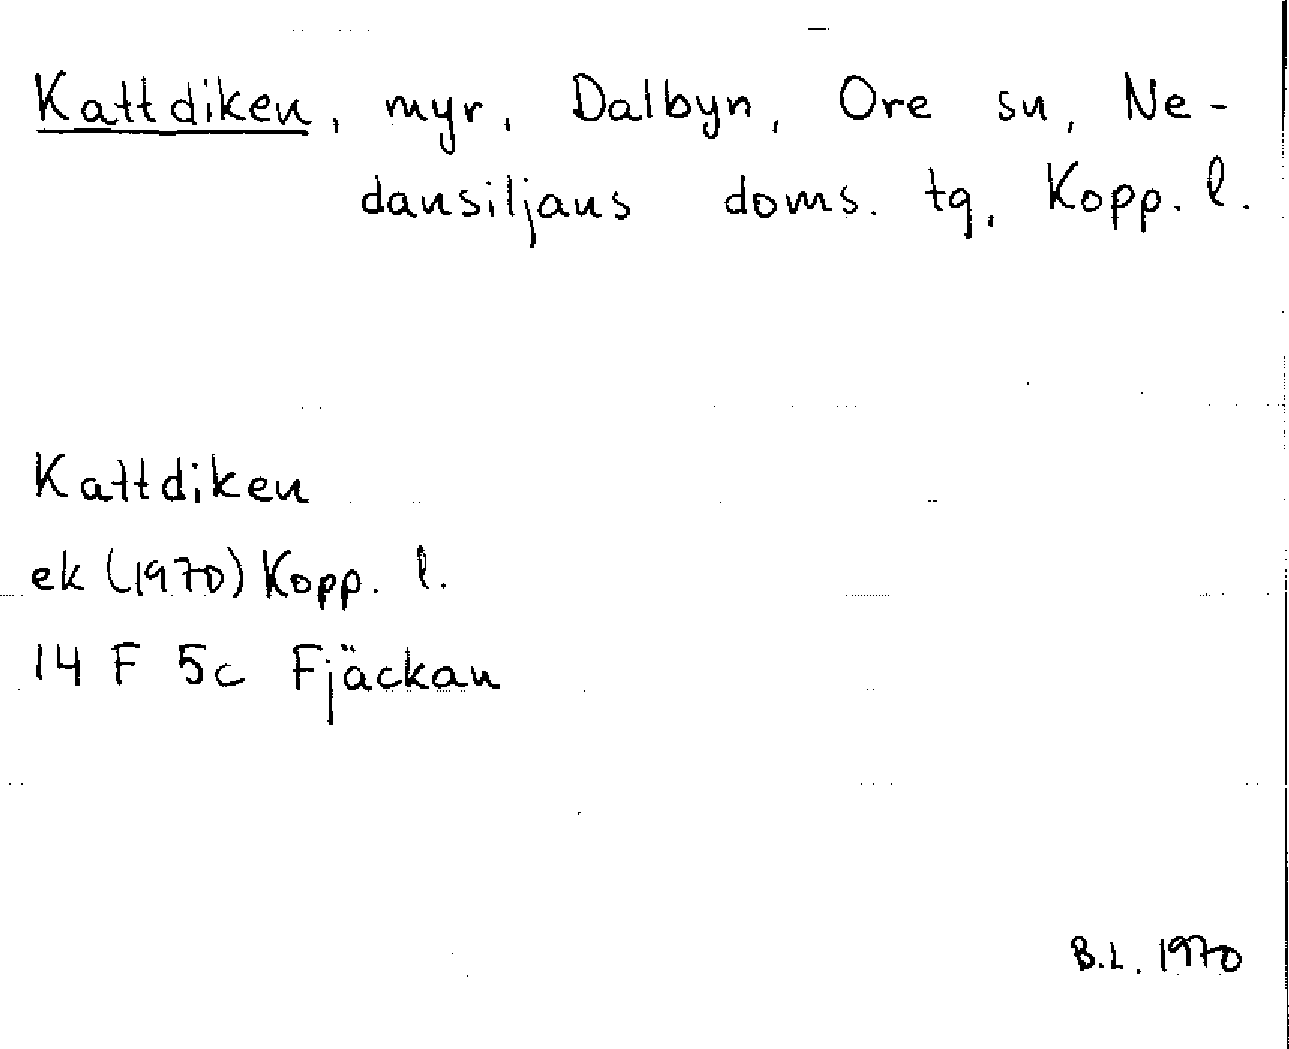 Kattdiken, myr, Dalbyn, Ore sn, Ne-
dansiljans doms. tg, Kopp. l.
Kattdiken
ek (1970) Kopp. l.
14 F 5c Fjäckan
B.L. 1970